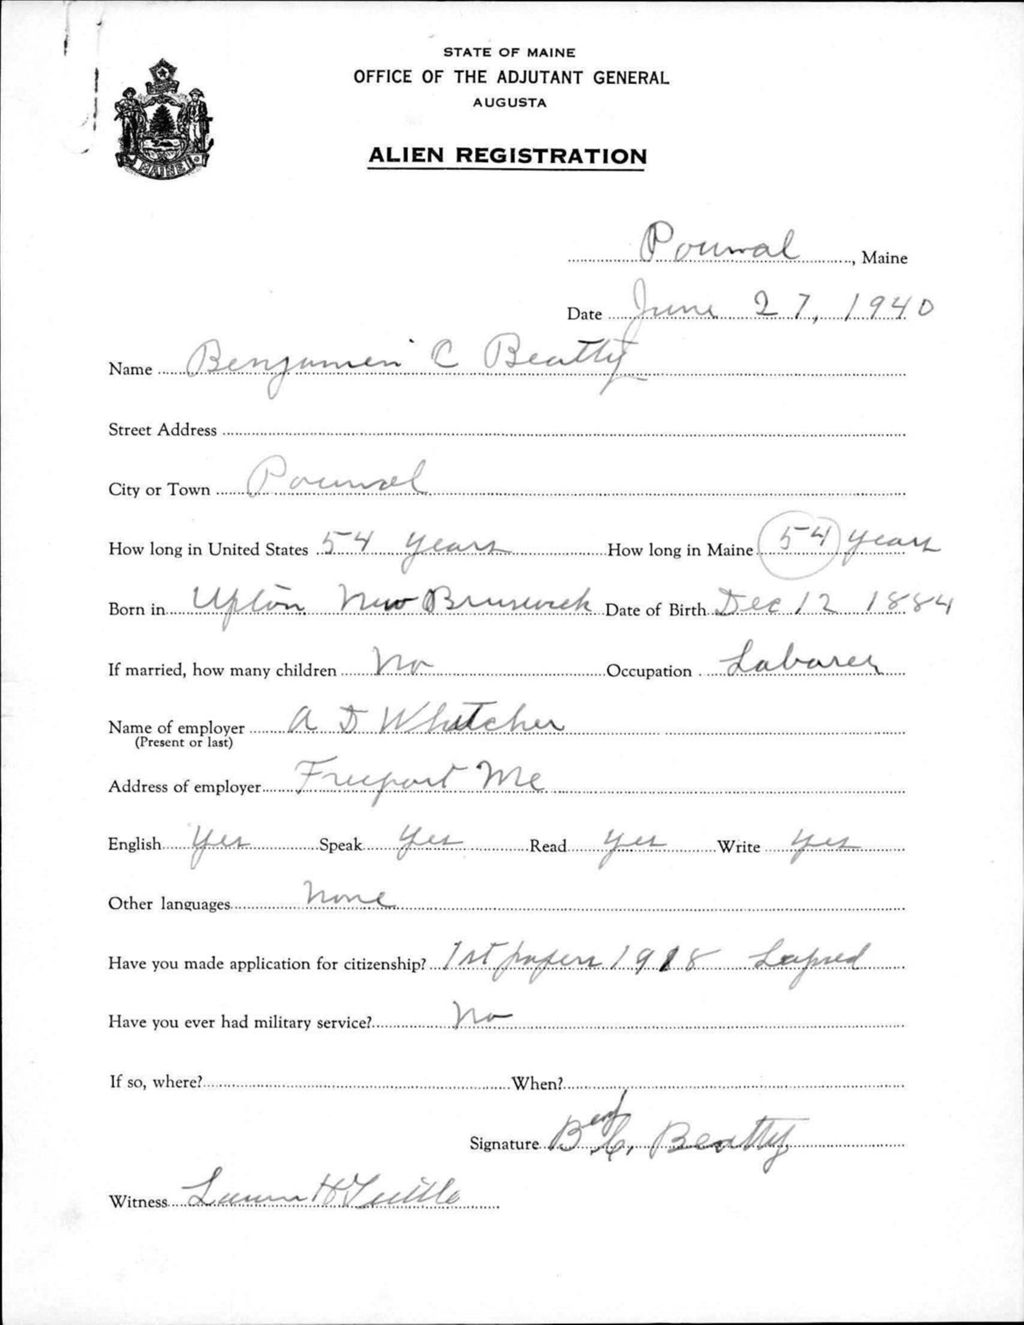 STATE OF MAINE
OFFICE OF THE ADJUTANT GENERAL
AUGUSTA
ALIEN REGISTRATION
MAINE
Pownal, Maine
Date June 27, 1940
Name Benjamen C Beatty
Street Address
City or Town Pownal
How long in United States 54 years How long in Maine 54 years
Born in Upton New Brunswick Date of Birth Dec 12 1884
If married, how many children No Occupation Laborer
Name of employer A D Whitcher
(Present or last)
Address of employer Freeport Me
English Yes Speak Yes Read Yes Write Yes
Other languages None
Have you made application for citizenship? 1st papers 1918 Lapsed
Have you ever had military service? No
If so, where? When?
Signature Benj C. Beatty
Witness H Tuttle